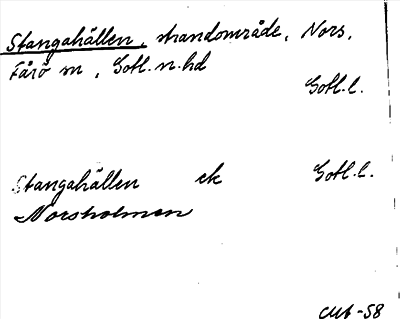 Stangahällen, strandområde, Nors,
Fårö sn, Gotl. n. hd
Gotl. l.
Stangahällen ek Gotl. l.
Norsholmen
-58